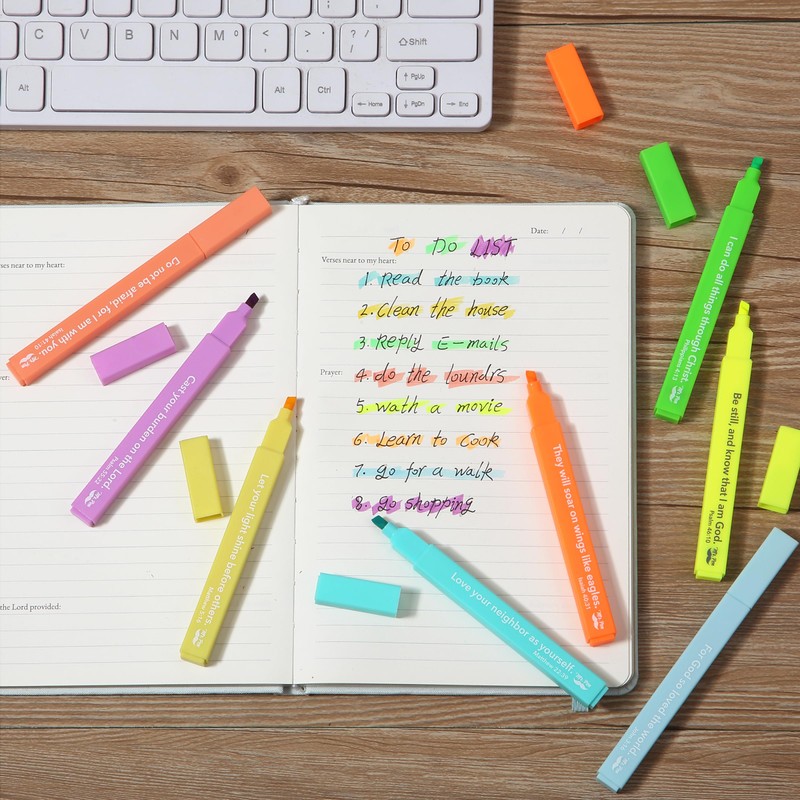 C V B N M º < , > . ? / ⇧Shift
Alt Alt Ctrl ←Home ↑PgUp ↓PgDn →End
Date: / /
Verses near to my heart:
To Do LIST
1. Read the book
2. Clean the house
3. REPLY E-mails
Prayer:
4. do the loundrs
5. wath a movie
6. Learn to Cook
7. go for a walk
8. go shopping
es near to my heart:
er:
the Lord provided:
Do not be afraid, for I am with you.
Isaiah 41:10
Cast your burden on the Lord.
Psalm 55:22
Let your light shine before others.
Matthew 5:16
Love your neighbor as yourself.
Matthew 22:39
They will soar on wings like eagles.
Isaiah 40:31
I can do all things through Christ.
Philippians 4:13
Be still, and know that I am God.
Psalm 46:10
For God so loved the world.
John 3:16
Mr. Pen
Mr. Pen
Mr. Pen
Mr. Pen
Mr. Pen
Mr. Pen
Mr. Pen
Mr. Pen